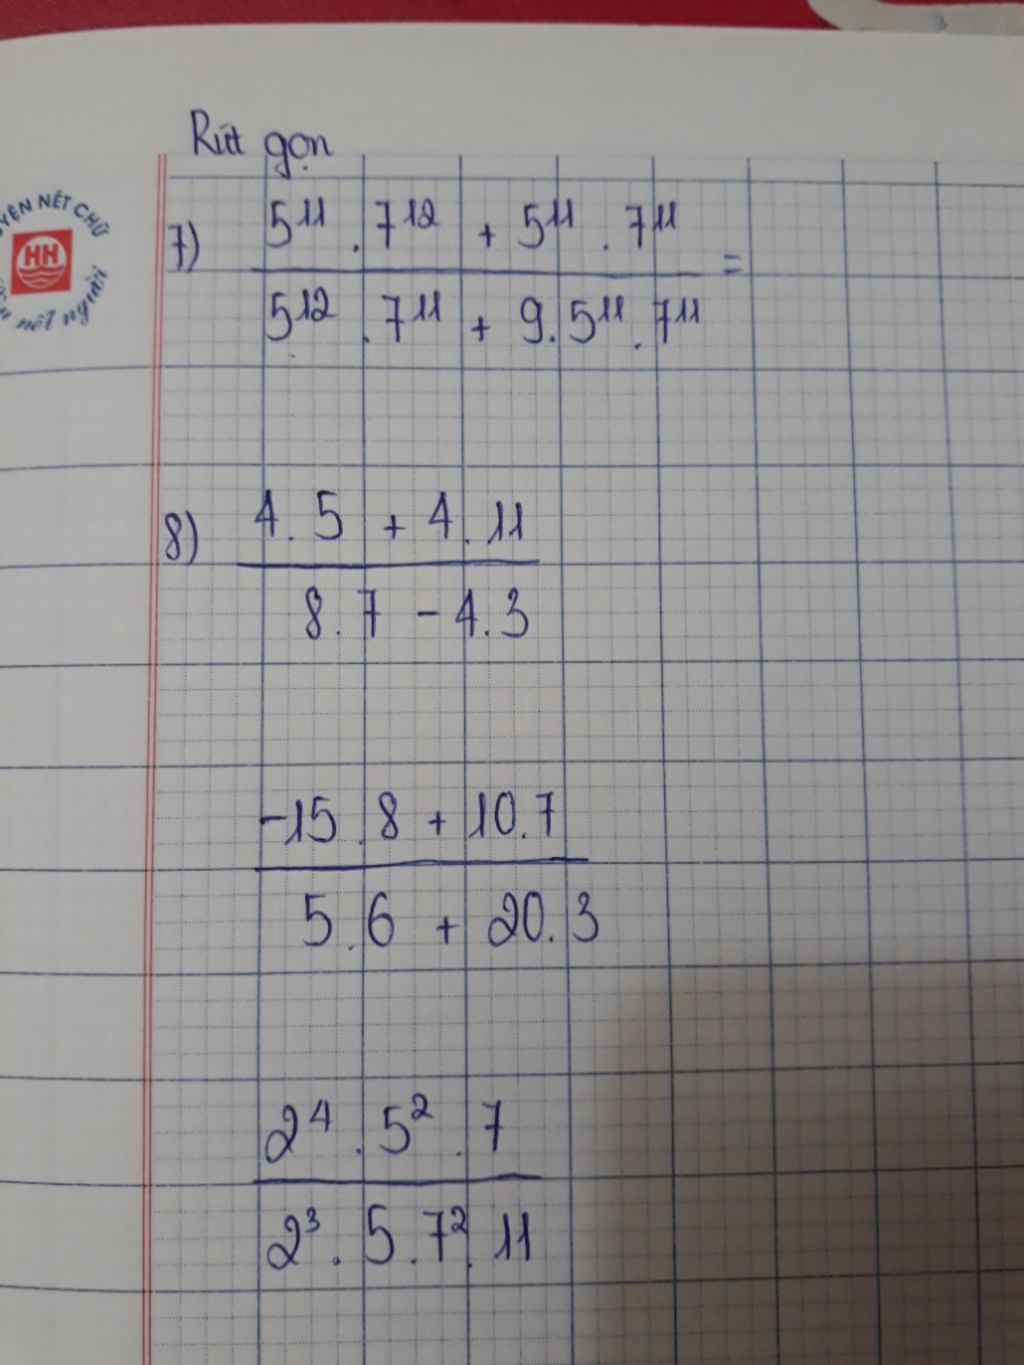 Rút gọn
7) 5¹¹ . 7¹² + 5¹¹ . 7¹¹ =
5¹² . 7¹¹ + 9 . 5¹¹ . 7¹¹
8) 4 . 5 + 4 . 11
8 . 7 - 4 . 3
-15 . 8 + 10 . 7
5 . 6 + 20 . 3
2⁴ . 5² . 7
2³ . 5 . 7² . 11
NÉT CHỮ
HH
nết người